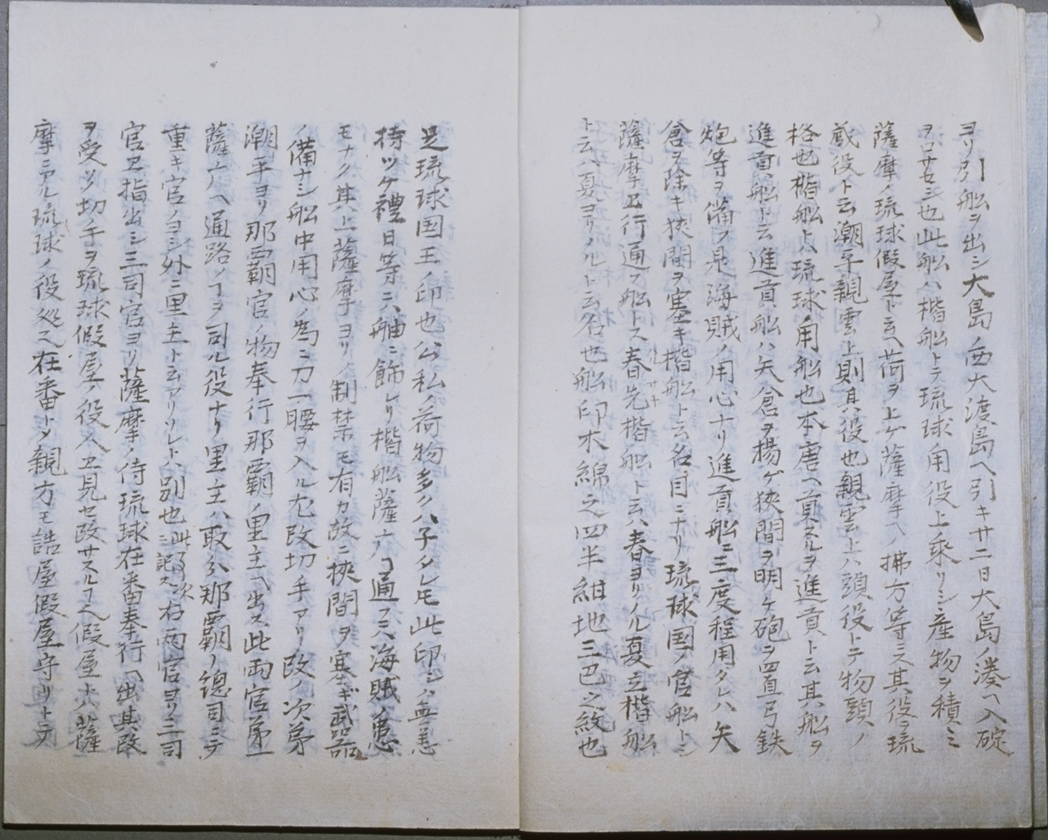 ヨリ引船ヲ出シ大島ノ西大渡島ヘ引キ廿二日大島ノ湊ヘ入碇
ヲロサセシ也此船ハ楷船トテ琉球用役上乗リシ産物ヲ積ミ
薩摩ノ琉球假屋ト云ヘ荷ヲ上ケ薩摩ヘ拂方等ヲ其役琉
蔵役ト云潮平親雲上則其役也親雲上ハ頭役トテ物頭ノ
格也楷船ト云琉球ノ用船也本唐ヘ貢ヲ進貢ト云其船ヲ
進貢船ト云進貢船ハ矢倉ヲ揚ケ狭間ヲ明ケ砲ヲ置弓鉄
炮等ヲ備フ是海賊ノ用心ナリ進貢船ニ三度程用タレハ矢
倉ヲ除キ狭間ヲ塞キ楷船ト云名目ニナリ琉球国ノ官船トシ
薩摩エ行通フ船トス春先楷船ト云ハ春ヨリノル夏立楷船
ト云ハ夏ヨリノルト云名也船印木綿之四半紺地三巴之紋也
是琉球国王ノ印也公私ノ荷物多クハ子タレ𪜈此印シノ無差
持ツケ禮日等ニハ舳ニ飾レリ楷船薩ヘ通フニハ海賊ノ患
モナク其上薩摩ヨリノ制禁モ有カ故ニ挟間ヲ塞ギ武器
ノ備ナシ船中用心ノ為ニ刀一腰ヲ入ル尤改切手アリ改ノ次第
潮平ヨリ那覇官ノ物奉行那覇ノ里主ヘ出ス此両官第一
薩ヘ通路ノヿヲ司ル役ナリ里主ハ取分那覇ノ總司ニテ
重キ官ノヨシ外ニ里主ト云アリシレト別也此次ニ記ス右両官ヨリ三司
官エ指出シ三司官ヨリ薩摩ノ侍琉球在番奉行ヘ出其改
ヲ受ツ切手ヲ琉球假屋ノ役人エ見セ改サスルナリ假屋ト云ハ薩
摩ニアル琉球ノ役処ニ在番トメ親方モ詰屋假屋守リトテ